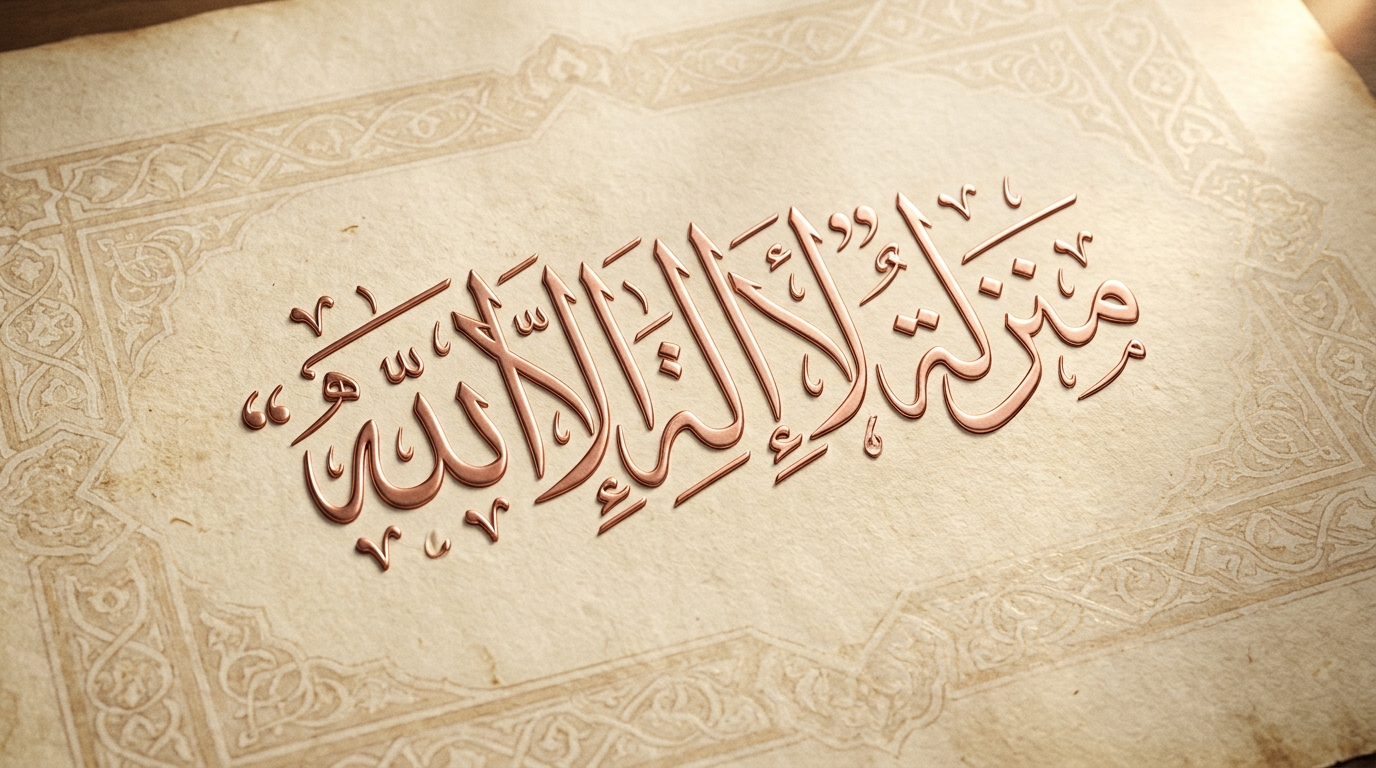 منزلةُ ”لأ إلَةِ إلّا اللّهُ“